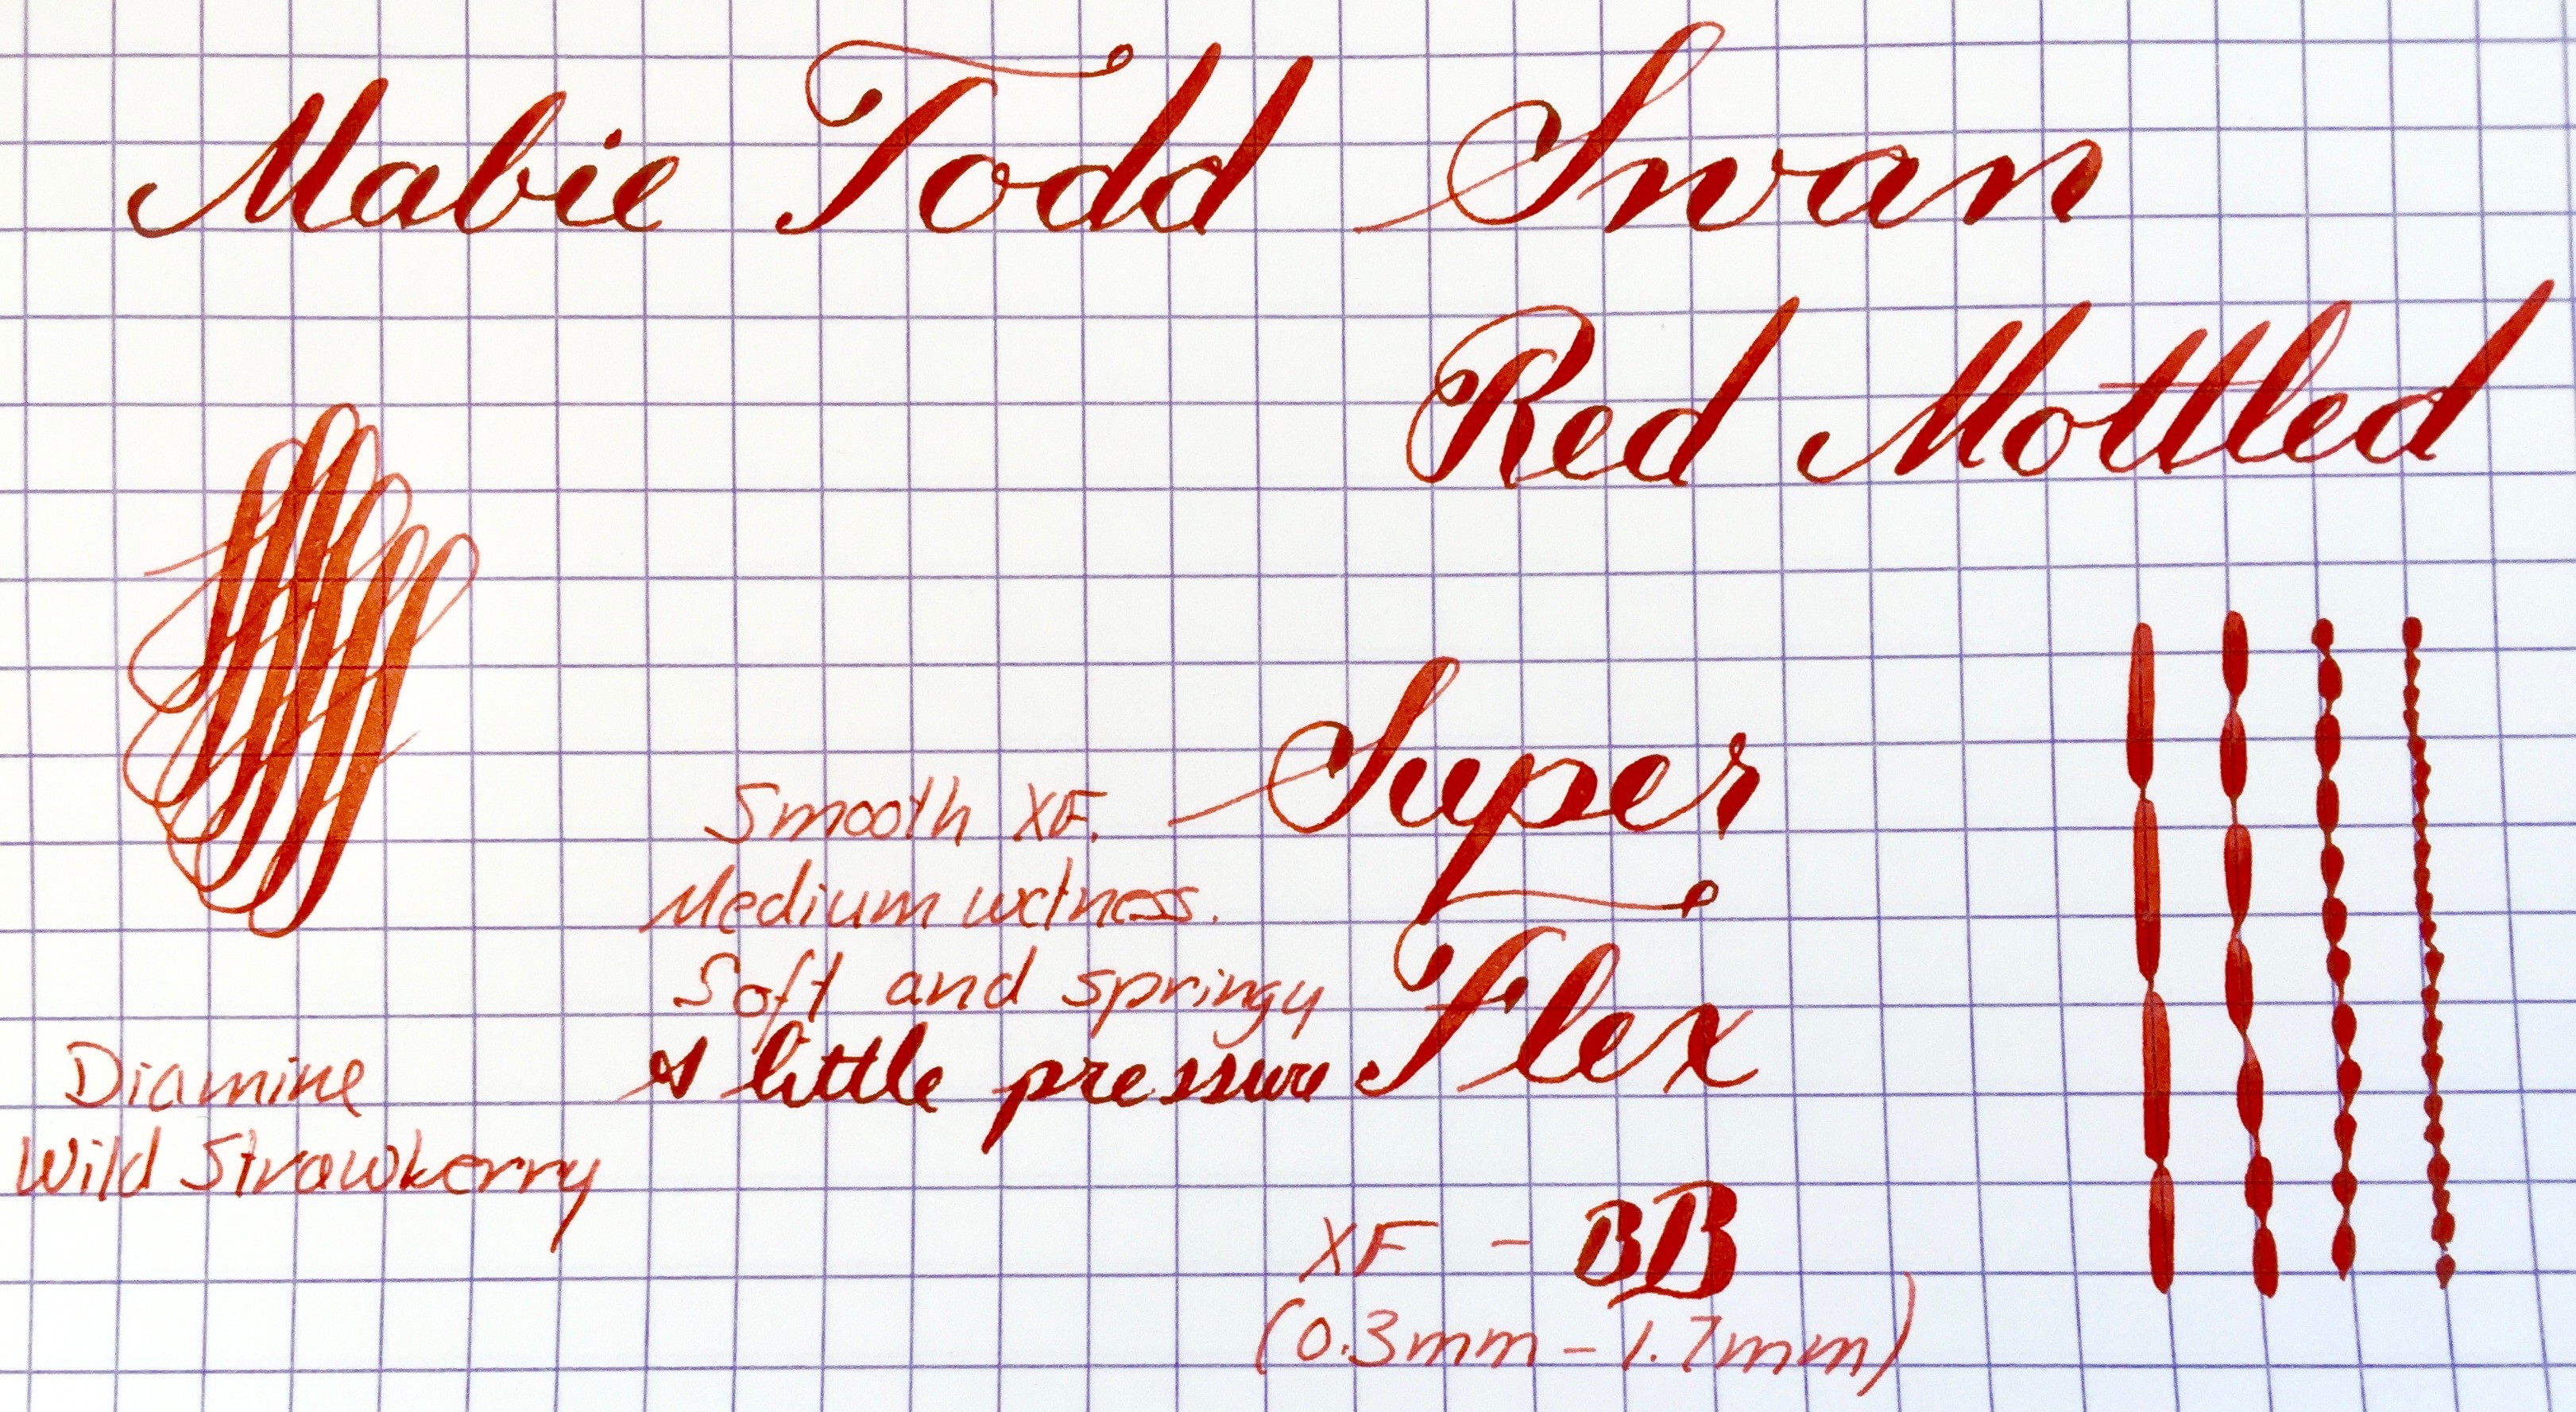 Mabie Todd Swan
Red Mottled
Super
Flex
Smooth XF.
Medium wetness.
Soft and springy
A little pressure
Diamine
Wild Strawberry
XF - BB
(0.3mm - 1.7mm)